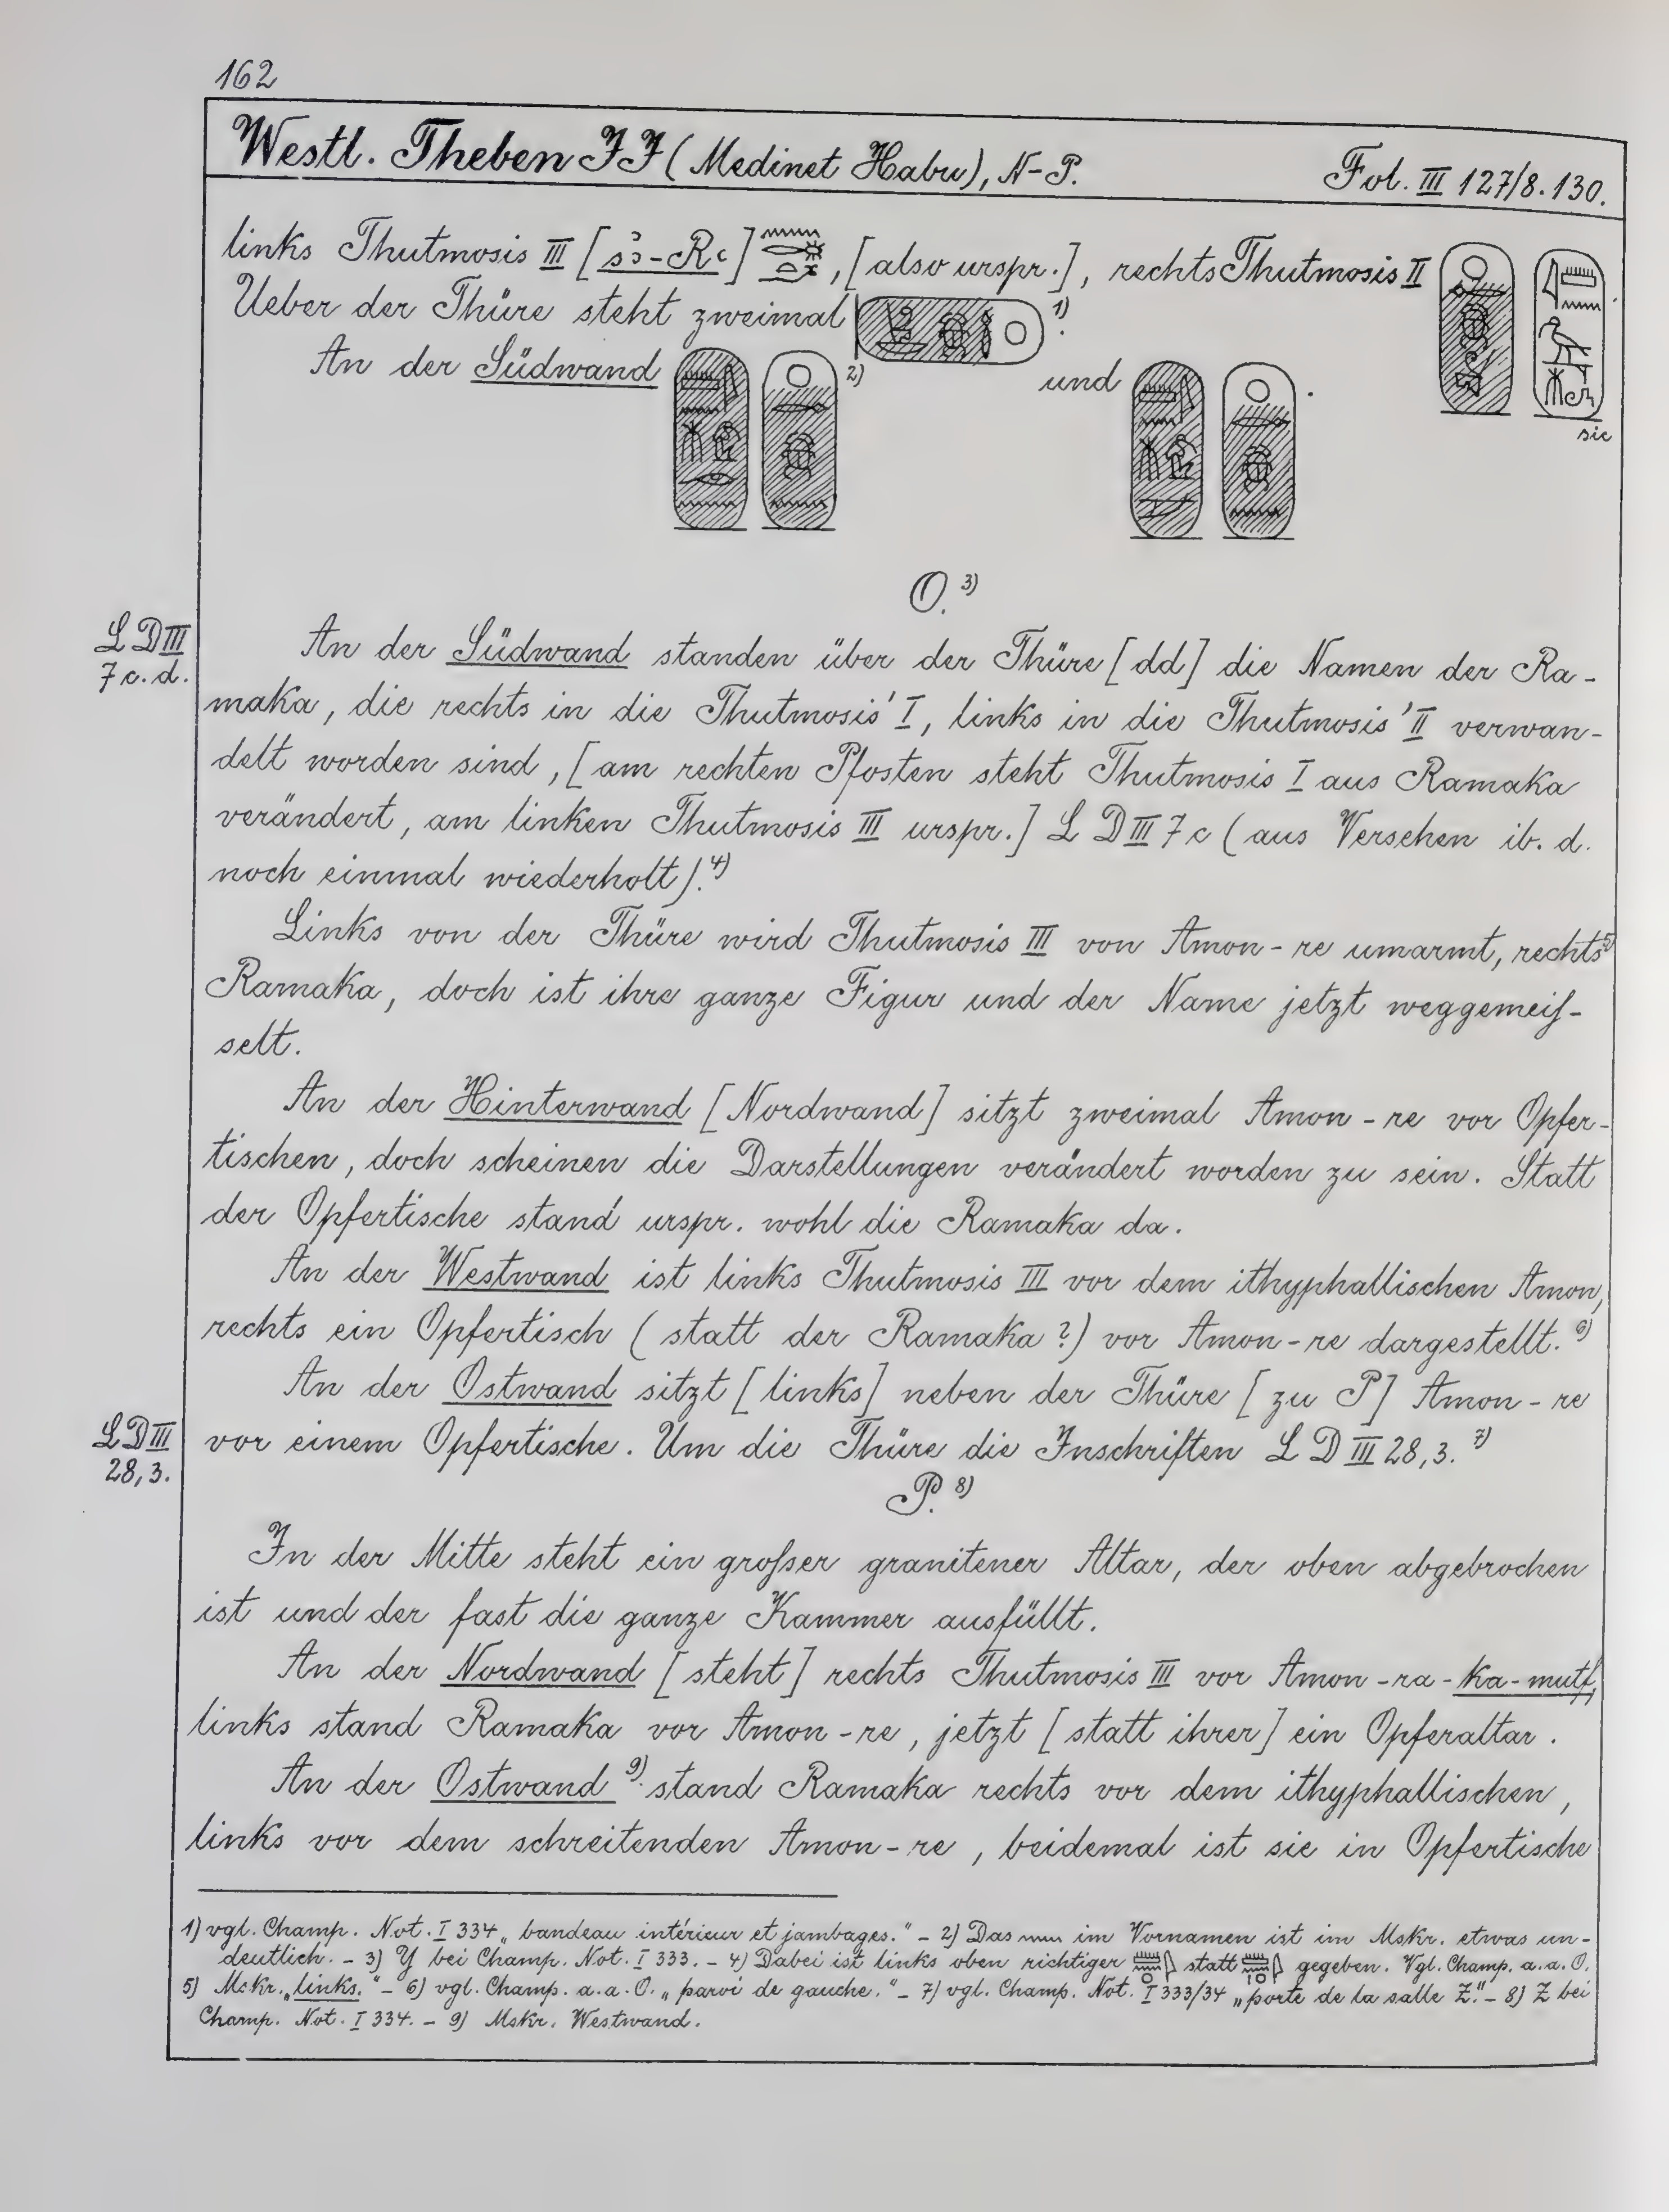 162
Westl. Theben II (Medinet Habu), N-P. Fol. III 127/8. 130.
links Thutmosis III [sꜣ-Rꜥ], [also urspr.], rechts Thutmosis II
Ueber der Thüre steht zweimal 1).
An der Südwand 2) und .
sic
O. 3)
LD III
7 c. d.
An der Südwand standen über der Thüre [dd] die Namen der Ra-
maka, die rechts in die Thutmosis' I, links in die Thutmosis' II verwan-
delt worden sind, [am rechten Pfosten steht Thutmosis I aus Ramaka
verändert, am linken Thutmosis III urspr.] L D III 7 c (aus Versehen ib. d.
noch einmal wiederholt). 4)
Links von der Thüre wird Thutmosis III von Amon-re umarmt, rechts 5)
Ramaka, doch ist ihre ganze Figur und der Name jetzt weggemeiſ-
selt.
An der Hinterwand [Nordwand] sitzt zweimal Amon-re vor Opfer-
tischen, doch scheinen die Darstellungen verändert worden zu sein. Statt
der Opfertische stand urspr. wohl die Ramaka da.
An der Westwand ist links Thutmosis III vor dem ithyphallischen Amon,
rechts ein Opfertisch (statt der Ramaka?) vor Amon-re dargestellt. 6)
An der Ostwand sitzt [links] neben der Thüre [zu P] Amon-re
LD III
28,3.
vor einem Opfertische. Um die Thüre die Inschriften L D III 28,3. 7)
P. 8)
In der Mitte steht ein groſser granitener Altar, der oben abgebrochen
ist und der fast die ganze Kammer ausfüllt.
An der Nordwand [steht] rechts Thutmosis III vor Amon-ra-ka-mutf,
links stand Ramaka vor Amon-re, jetzt [statt ihrer] ein Opferaltar.
An der Ostwand 9) stand Ramaka rechts vor dem ithyphallischen,
links vor dem schreitenden Amon-re, beidemal ist sie in Opfertische
1) vgl. Champ. Not. I 334 „bandeau intérieur et jambages." - 2) Das 𓈖 im Vornamen ist im Mskr. etwas un-
deutlich. - 3) Y bei Champ. Not. I 333. - 4) Dabei ist links oben richtiger statt gegeben. Vgl. Champ. a. a. O.
5) Mskr. „links." - 6) vgl. Champ. a. a. O. „paroi de gauche." - 7) vgl. Champ. Not. I 333/34 „porte de la salle Z." - 8) Z bei
Champ. Not. I 334. - 9) Mskr. Westwand.